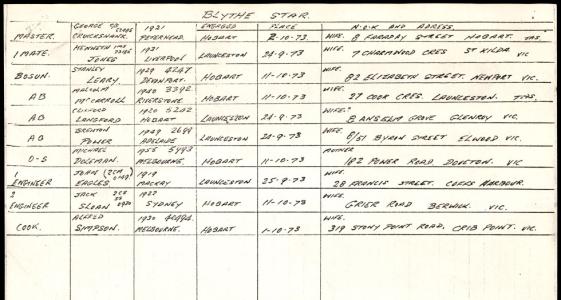 BLYTHE STAR.
GEORGE 1921 ENGAGED PLACE N.O.K AND ADRESS.
MASTER. CRUCKSHANK. PETERHEAD. HOBART 2-10-73. WIFE. 8 FARADAY STREET HOBART. TAS.
KENNETH 1921 WIFE.
1 MATE. JONES LIVERPOOL LAUNCESTON 24-9-73 7 CHARNWOOD CRES ST KILDA VIC
STANLEY 1929 4247 WIFE.
BOSUN. LEARY DEVONPORT. HOBART 11-10-73 82 ELIZABETH STREET. NEWPORT VIC.
MALCOLM 1940 3392 WIFE.
AB McCARROLL RIVERSTONE HOBART 11-10-73 37 COOK CRES. LAUNCESTON. TAS.
CLIFFORD 1920 5202 WIFE.
AB LANGFORD HOBART LAUNCESTON 24-9-73 8 ANSELM GROVE GLENROY VIC.
BRENTON 1949 2699 WIFE.
AB POWER ADELAIDE LAUNCESTON 24-9-73 6/51 BYRON STREET ELWOOD VIC.
MICHAEL 1955 5493 MOTHER
O-S DOLEMAN. MELBOURNE. HOBART 11-10-73 182 POWER ROAD DOVETON. VIC
1 JOHN 1919 WIFE.
ENGINEER EAGLES MACKAY LAUNCESTON 25-9-73 28 FRANCIS STREET. COFFS HARBOUR.
2 JACK 1927 WIFE.
ENGINEER SLOAN SYDNEY HOBART 11-10-73 GRIER ROAD BERWICK. VIC.
ALFRED 1930 WIFE.
COOK. SIMPSON. MELBOURNE. HOBART 1-10-73 319 STONY POINT ROAD, CRIB POINT. VIC.